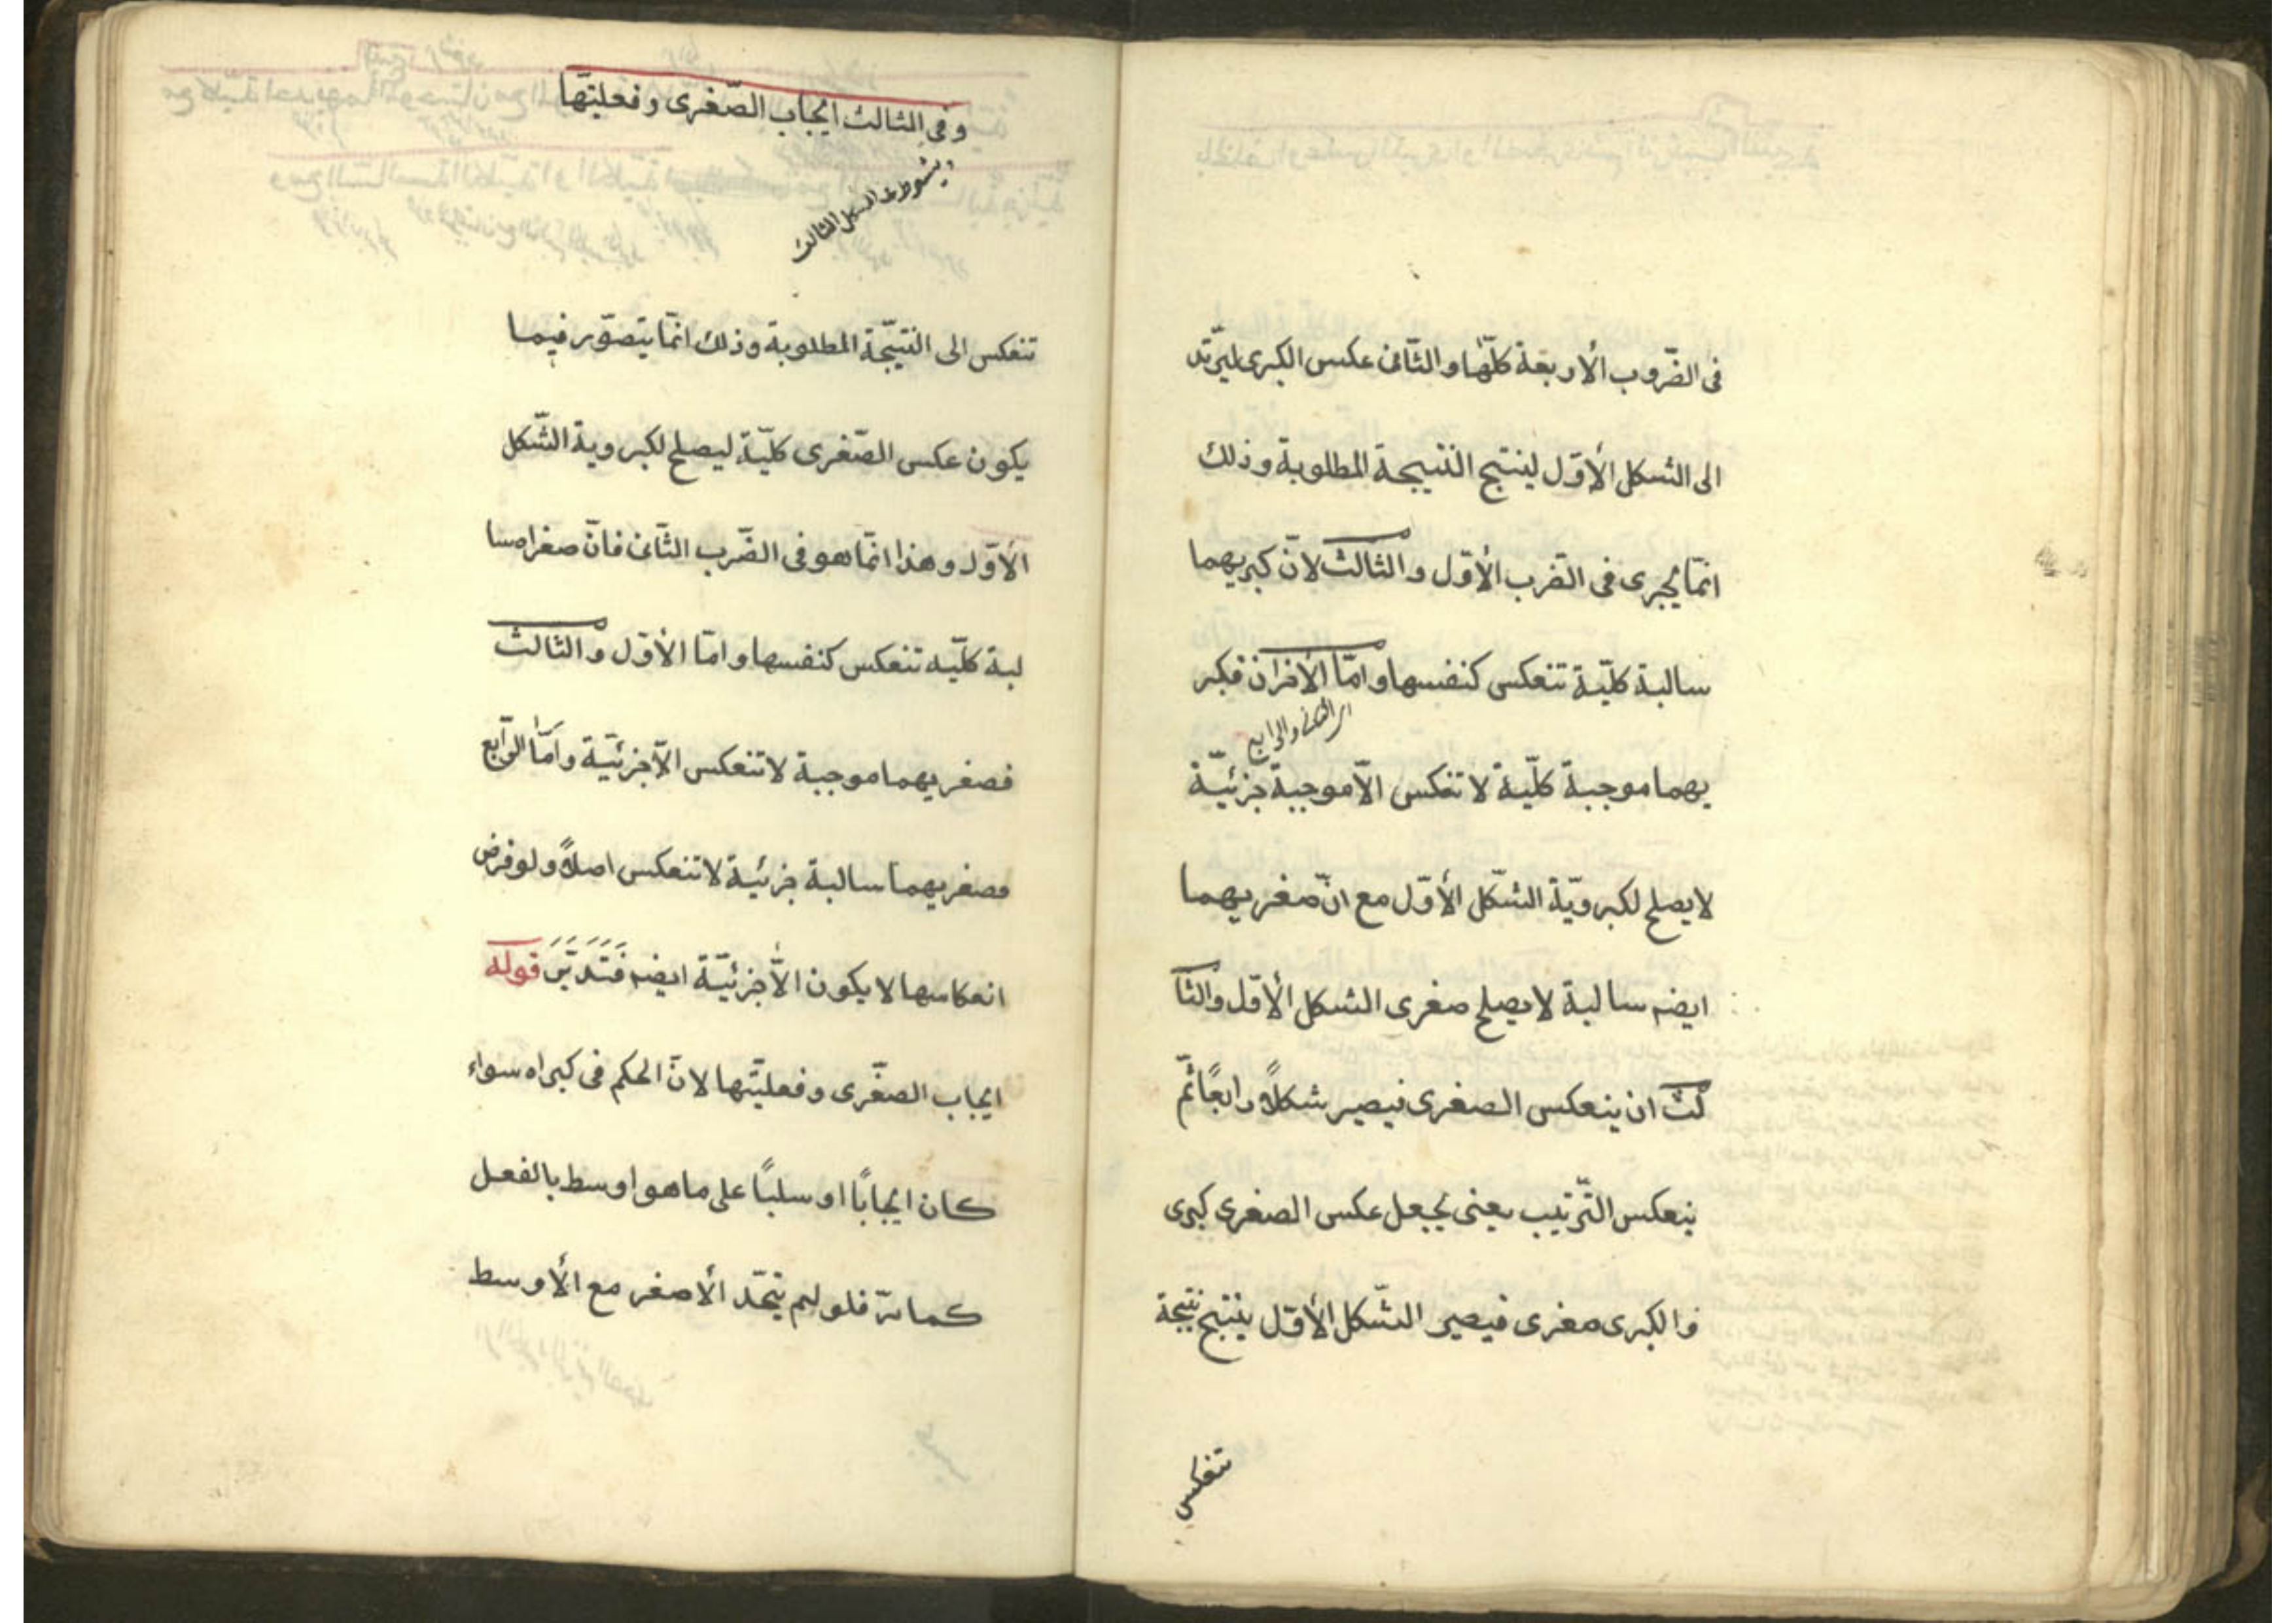 فى الضّروب الأربعة كلّها والثّانى عكس الكبرى ليرتد
الى الشكل الأوّل لينتج النتيجة المطلوبة وذلك
انمّا يجرى فى الضّرب الأوّل والثالث لانّ كبريهما
سالبة كلّية تنعكس كنفسها وامّا الأخران فكبر
اى الثانى والرابع
يهما موجبة كلّية لا تنعكس الاّ موجبة جزئيّة
لا يصلح لكبرويّة الشّكل الأوّل مع انّ صغريهما
ايضه سالبة لا يصلح صغرى الشكل الأوّل والثا
لث ان ينعكس الصغرى فيصير شكلاً رابعًا ثمّ
ينعكس التّرتيب يعنى يجعل عكس الصغرى كبرى
والكبرى صغرى فيصير الشّكل الأوّل ينتج نتيجة
تنعكس
وفى الثالث ايجاب الصّغرى وفعليتّها
ويشترط فى الشكل الثالث
تنعكس الى النتيّجة المطلوبة وذلك انمّا يتصوّر فيما
يكون عكس الصّغرى كليّة ليصلح لكبروية الشّكل
الأوّل وهذا انمّا هو فى الضّرب الثّانى فانّ صغراه سا
لبة كلّيه تنعكس كنفسها وامّا الأوّل والثالث
فصغريهما موجبة لا تنعكس الاّ جزئيّة وامّا الرّابع
فصغريهما سالبة جزئية لا تنعكس اصلاً ولو فرض
انعكاسها لا يكون الاّ جزئيّة ايضه فَتَدَبَّرَ قوله
ايجاب الصغّرى وفعليتّها لانّ الحكم فى كبراه سواء
كان ايجابًا او سلبًا على ما هو اوسط بالفعل
كما مرّ فلو لم يتّحد الأصغر مع الأوسط